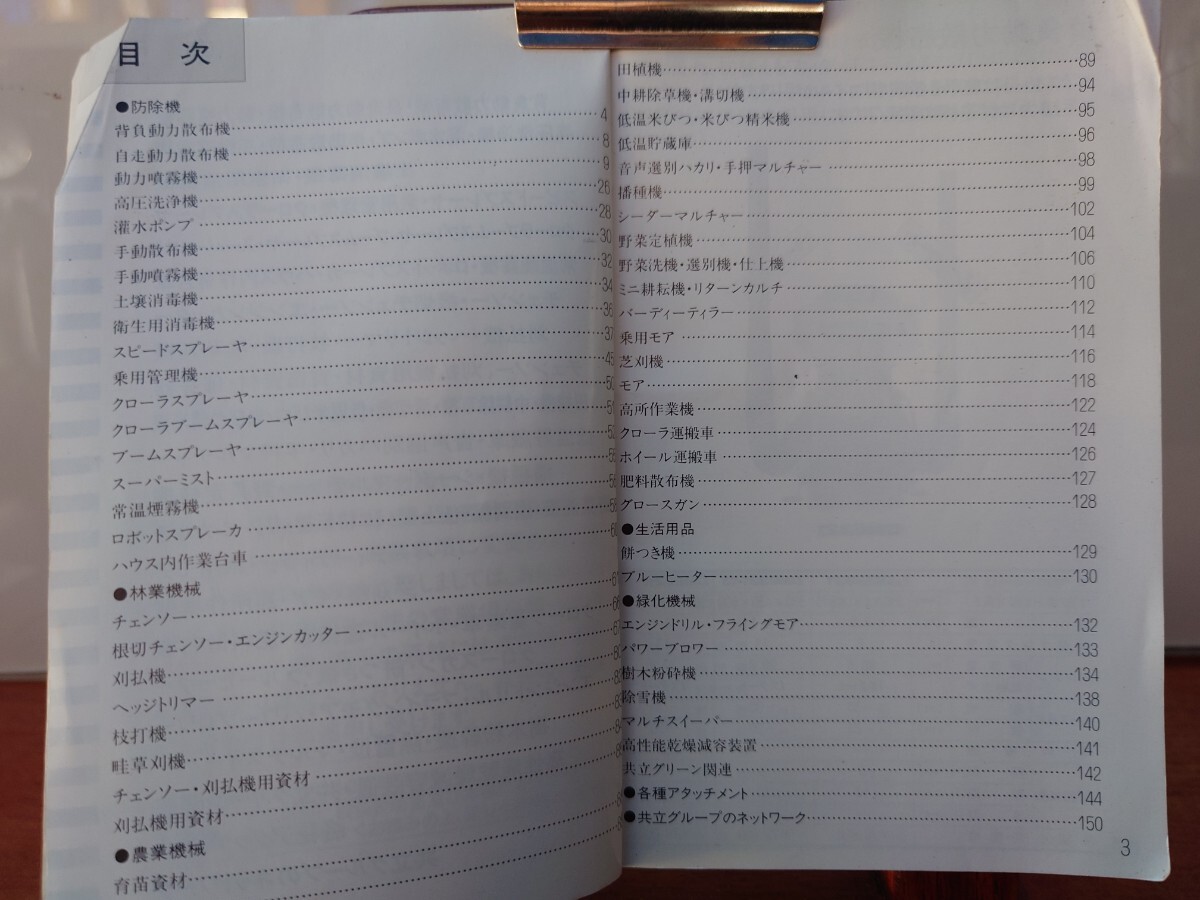 目 次
●防除機
背負動力散布機 4
自走動力散布機 8
動力噴霧機 9
高圧洗浄機 26
灌水ポンプ 28
手動散布機 30
手動噴霧機 32
土壌消毒機 34
衛生用消毒機 36
スピードスプレーヤ 37
乗用管理機 45
クローラスプレーヤ 50
クローラブームスプレーヤ 51
ブームスプレーヤ
スーパーミスト
常温煙霧機
ロボットスプレーカ
ハウス内作業台車 60
●林業機械
チェンソー 61
根切チェンソー・エンジンカッター
刈払機
ヘッジトリマー
枝打機
畦草刈機
チェンソー・刈払機用資材
刈払機用資材
●農業機械
育苗資材
田植機 89
中耕除草機・溝切機 94
低温米びつ・米びつ精米機 95
低温貯蔵庫 96
音声選別ハカリ・手押マルチャー 98
播種機 99
シーダーマルチャー 102
野菜定植機 104
野菜洗機・選別機・仕上機 106
ミニ耕耘機・リターンカルチ 110
バーディーティラー 112
乗用モア 114
芝刈機 116
モア 118
高所作業機 122
クローラ運搬車 124
ホイール運搬車 126
肥料散布機 127
グロースガン 128
●生活用品
餅つき機 129
ブルーヒーター 130
●緑化機械
エンジンドリル・フライングモア 132
パワーブロワー 133
樹木粉砕機 134
除雪機 138
マルチスイーパー 140
高性能乾燥減容装置 141
共立グリーン関連 142
●各種アタッチメント 144
●共立グループのネットワーク 150
3